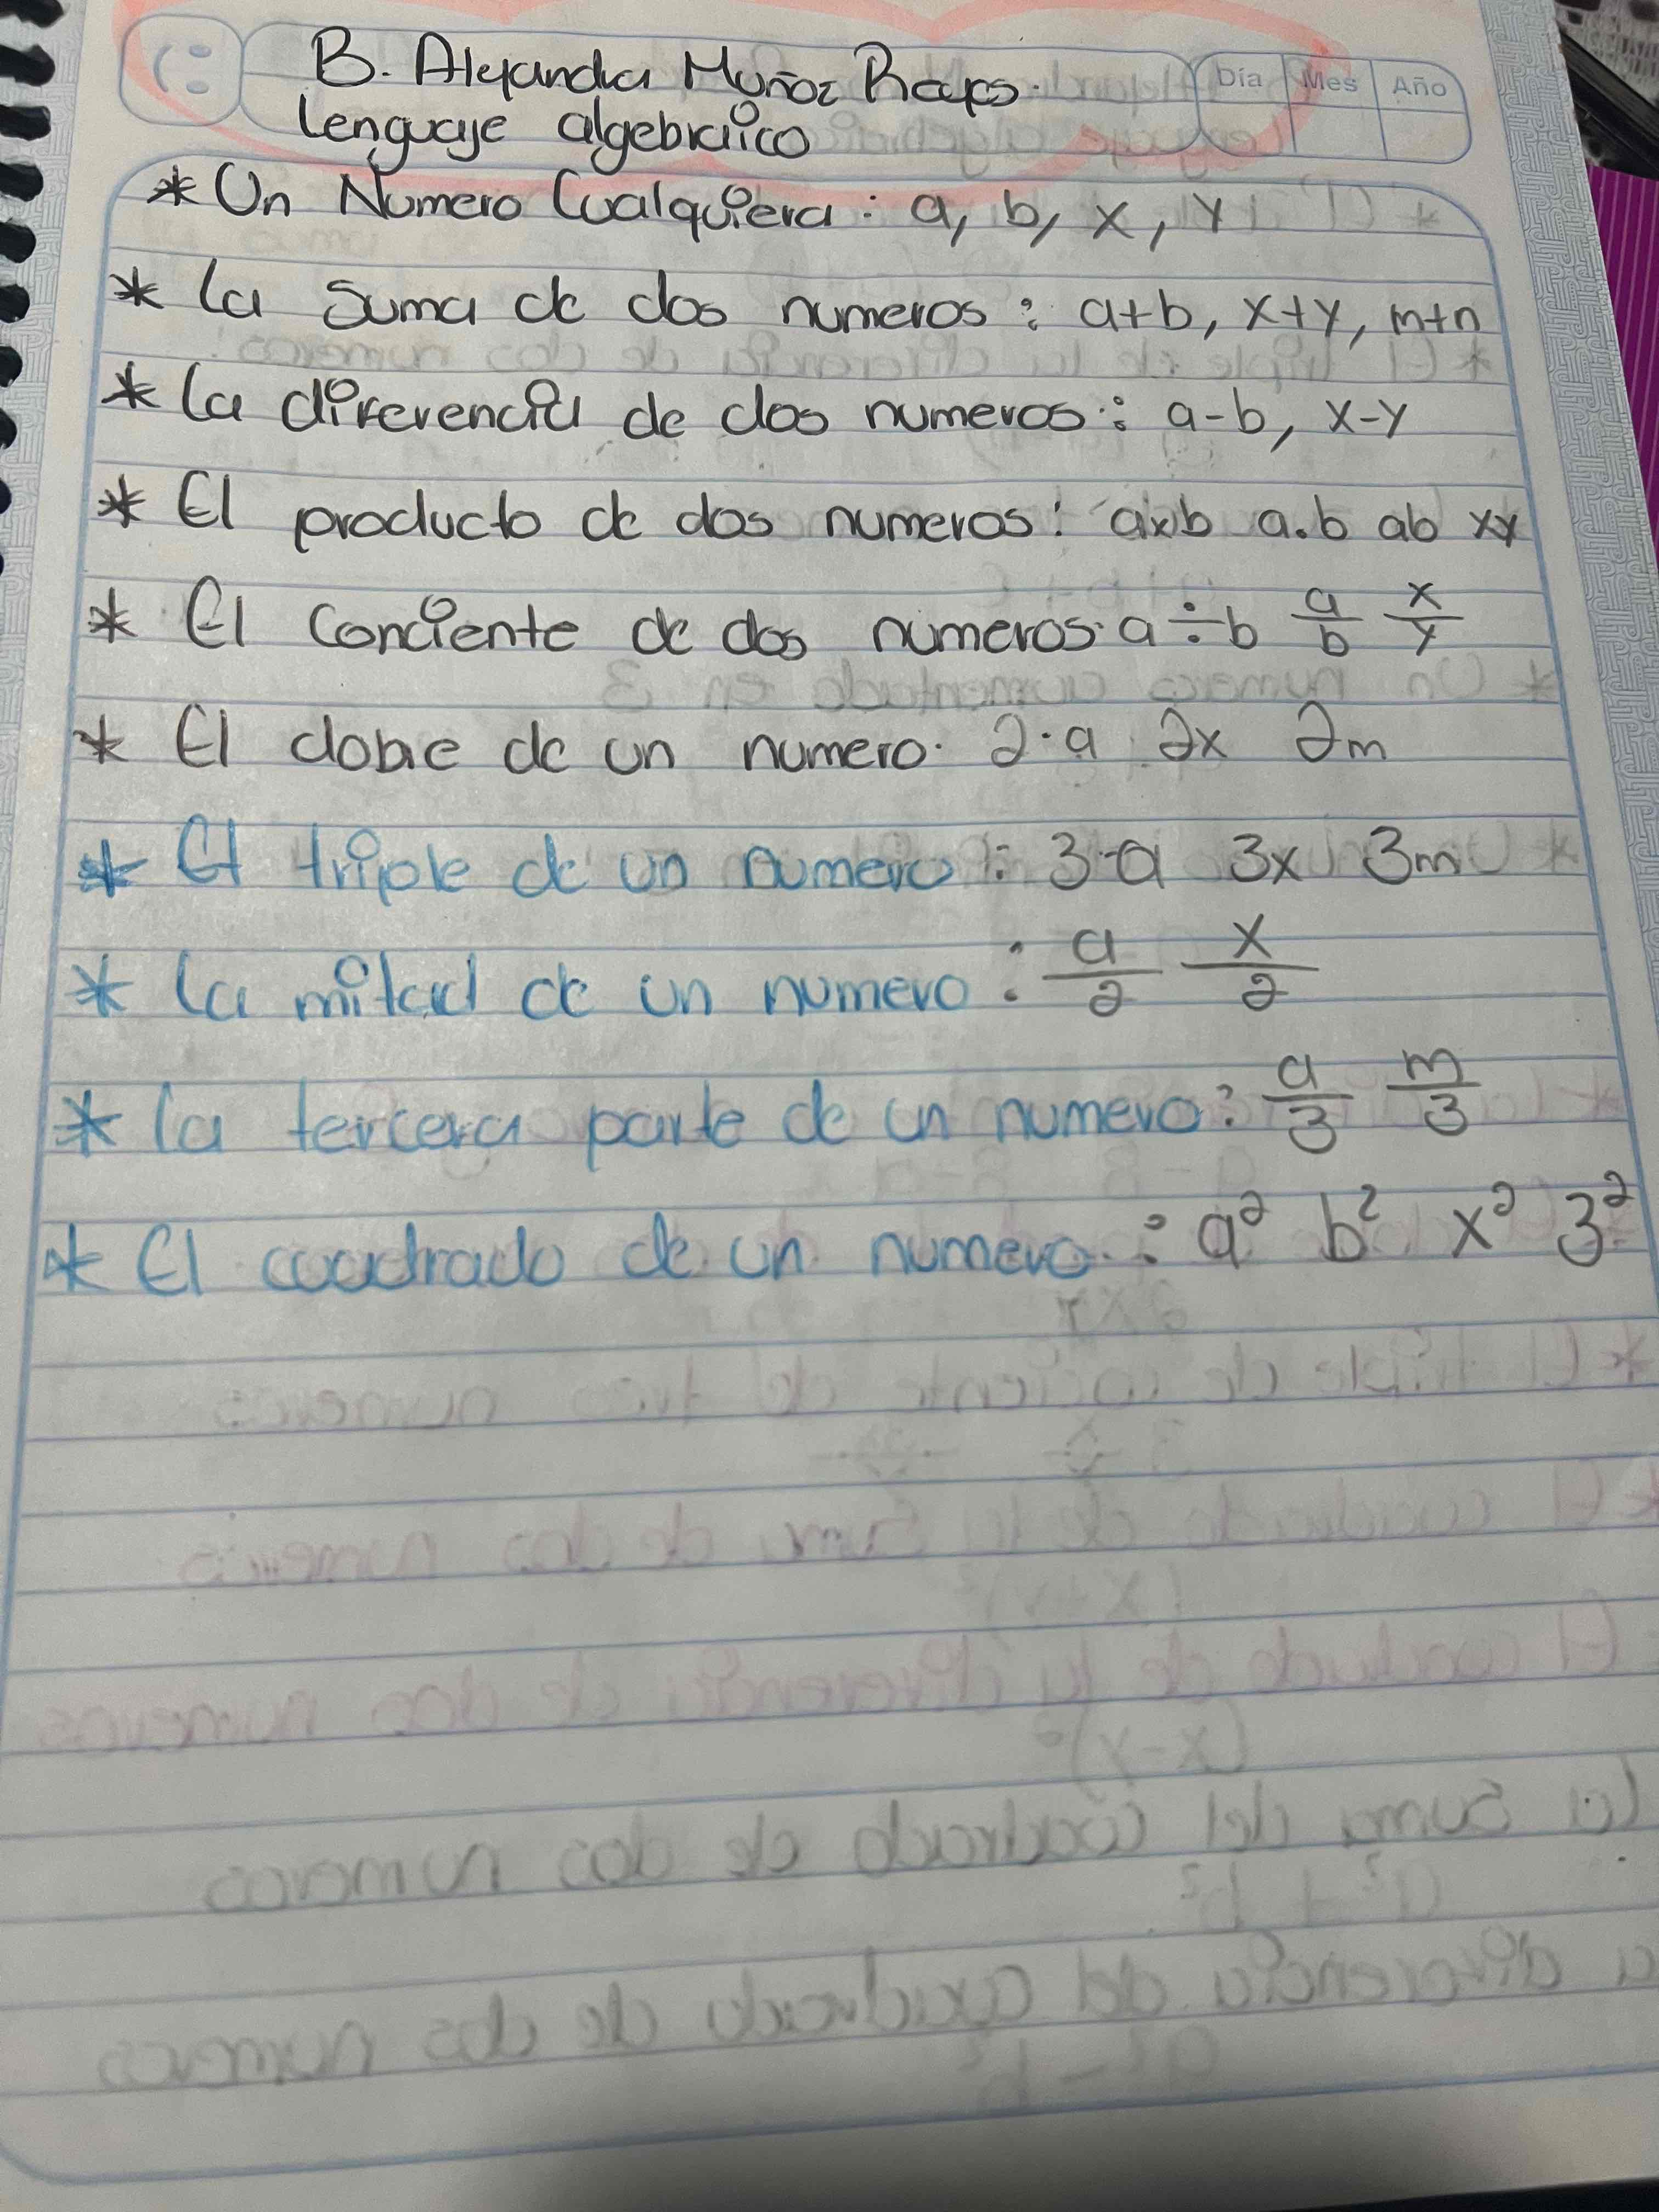 B. Alejandra Muñoz
Día Mes Año
Lenguaje algebraico
* Un Numero Cualquiera: a, b, x, y
* La Suma de dos numeros: a+b, x+y, m+n
* La diferencia de dos numeros: a-b, x-y
* El producto de dos numeros: axb a.b ab xy
* El Conciente de dos numeros: a÷b a/b x/y
* El doble de un numero. 2·a 2x 2m
* El triple de un numero: 3·a 3x 3m
* La mitad de un numero: a/2 x/2
* La tercera parte de un numero: a/3 m/3
* El cuadrado de un numero: a² b² x² 3²